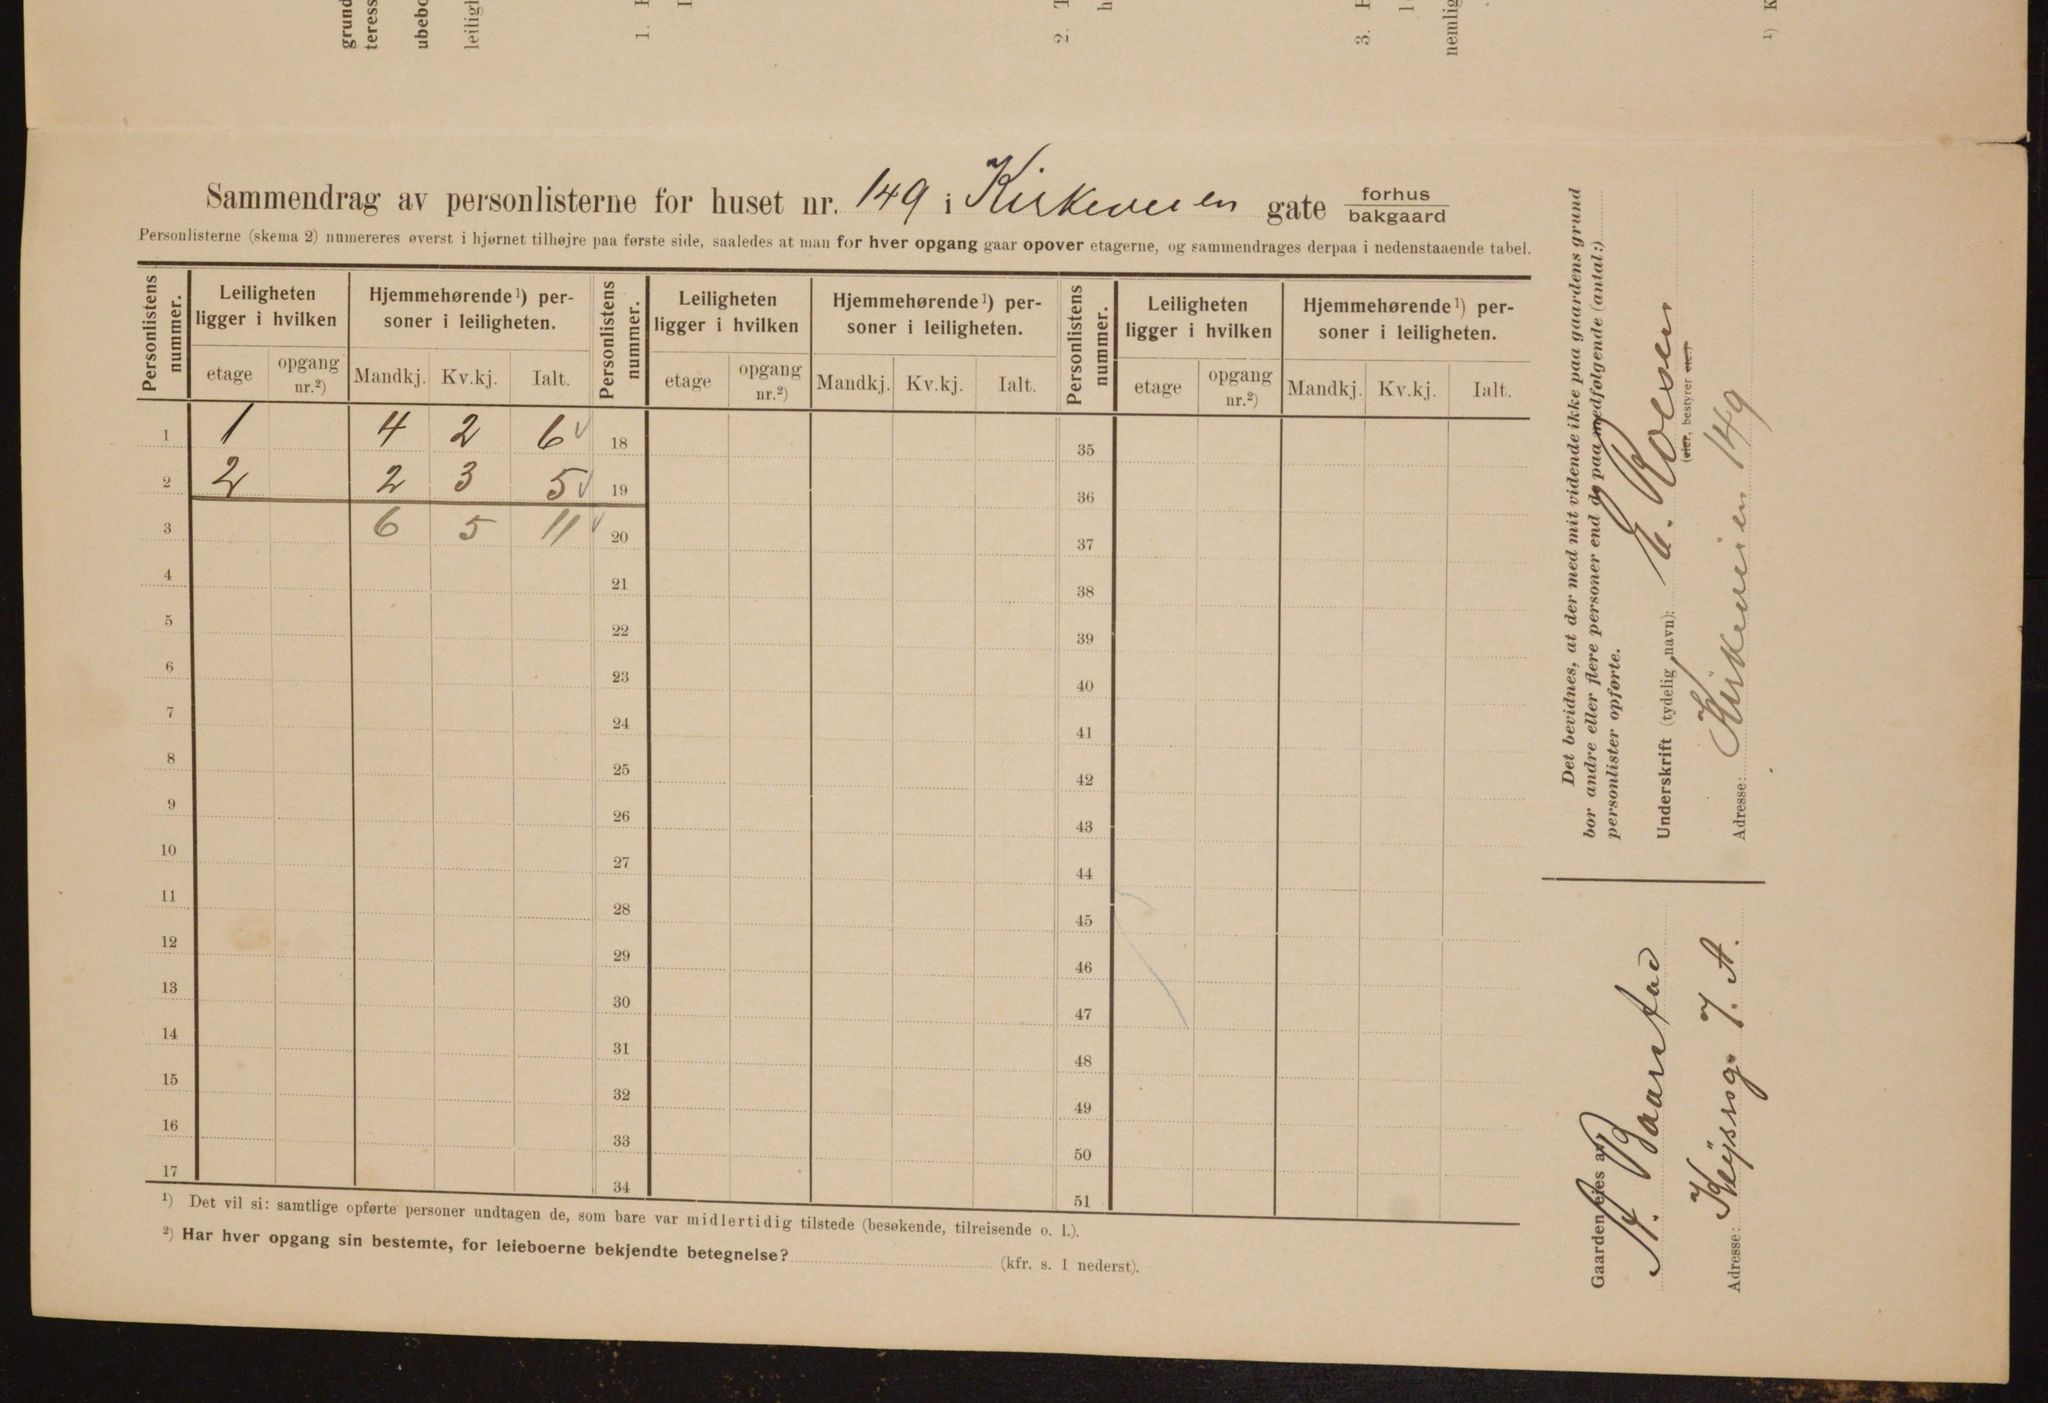 grund
teress
ubebo
leiligh
1.
2. T
h
3.
1
nemlig
¹) K
Sammendrag av personlisterne for huset nr. 149 i Kirkeveien gate forhus
bakgaard
Personlisterne (skema 2) numereres øverst i hjørnet tilhøjre paa første side, saaledes at man for hver opgang gaar opover etagerne, og sammendrages derpaa i nedenstaaende tabel.
Personlistens nummer. Leiligheten ligger i hvilken Hjemmehørende¹) personer i leiligheten. Personlistens nummer. Leiligheten ligger i hvilken Hjemmehørende¹) personer i leiligheten. Personlistens nummer. Leiligheten ligger i hvilken Hjemmehørende¹) personer i leiligheten.
etage opgang nr.²) Mandkj. Kv.kj. Ialt. etage opgang nr.²) Mandkj. Kv.kj. Ialt. etage opgang nr.²) Mandkj. Kv.kj. Ialt.
1 1 4 2 6 √ 18 35
2 2 2 3 5 √ 19 36
3 6 5 11 √ 20 37
4 21 38
5 22 39
6 23 40
7 24 41
8 25 42
9 26 43
10 27 44
11 28 45
12 29 46
13 30 47
14 31 48
15 32 49
16 33 50
17 34 51
¹) Det vil si: samtlige opførte personer undtagen de, som bare var midlertidig tilstede (besøkende, tilreisende o. l.).
²) Har hver opgang sin bestemte, for leieboerne bekjendte betegnelse? (kfr. s. 1 nederst).
Det bevidnes, at der med mit vidende ikke paa gaardens grund
bor andre eller flere personer end de paa medfølgende (antal:)
personlister opførte.
Underskrift (tydelig navn):
(eier, bestyrer etc.)
Adresse: Kirkeveien 149
Gaarden eies av:
Adresse: Keysersg. 7. A.